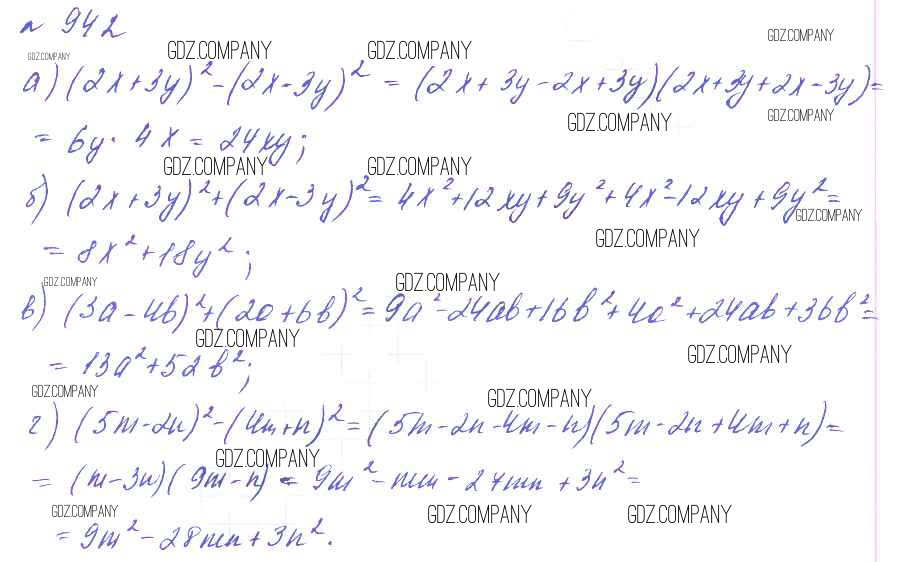 № 942
GDZ.COMPANY GDZ.COMPANY GDZ.COMPANY
GDZ.COMPANY
а) (2x+3y)² - (2x-3y)² = (2x+3y-2x+3y)(2x+3y+2x-3y)=
GDZ.COMPANY GDZ.COMPANY
= 6y · 4x = 24xy;
GDZ.COMPANY GDZ.COMPANY
б) (2x+3y)² + (2x-3y)² = 4x²+12xy+9y²+4x²-12xy+9y²=
GDZ.COMPANY
GDZ.COMPANY
= 8x²+18y²;
GDZ.COMPANY GDZ.COMPANY
в) (3a-4b)² + (2a+6b)² = 9a²-24ab+16b²+4a²+24ab+36b²=
GDZ.COMPANY GDZ.COMPANY
= 13a²+52b²;
GDZ.COMPANY GDZ.COMPANY
г) (5m-2n)² - (4m+n)² = (5m-2n-4m-n)(5m-2n+4m+n)=
GDZ.COMPANY
= (m-3n)(9m-n) = 9m²-mn-27mn+3n²=
GDZ.COMPANY GDZ.COMPANY GDZ.COMPANY
= 9m²-28mn+3n².